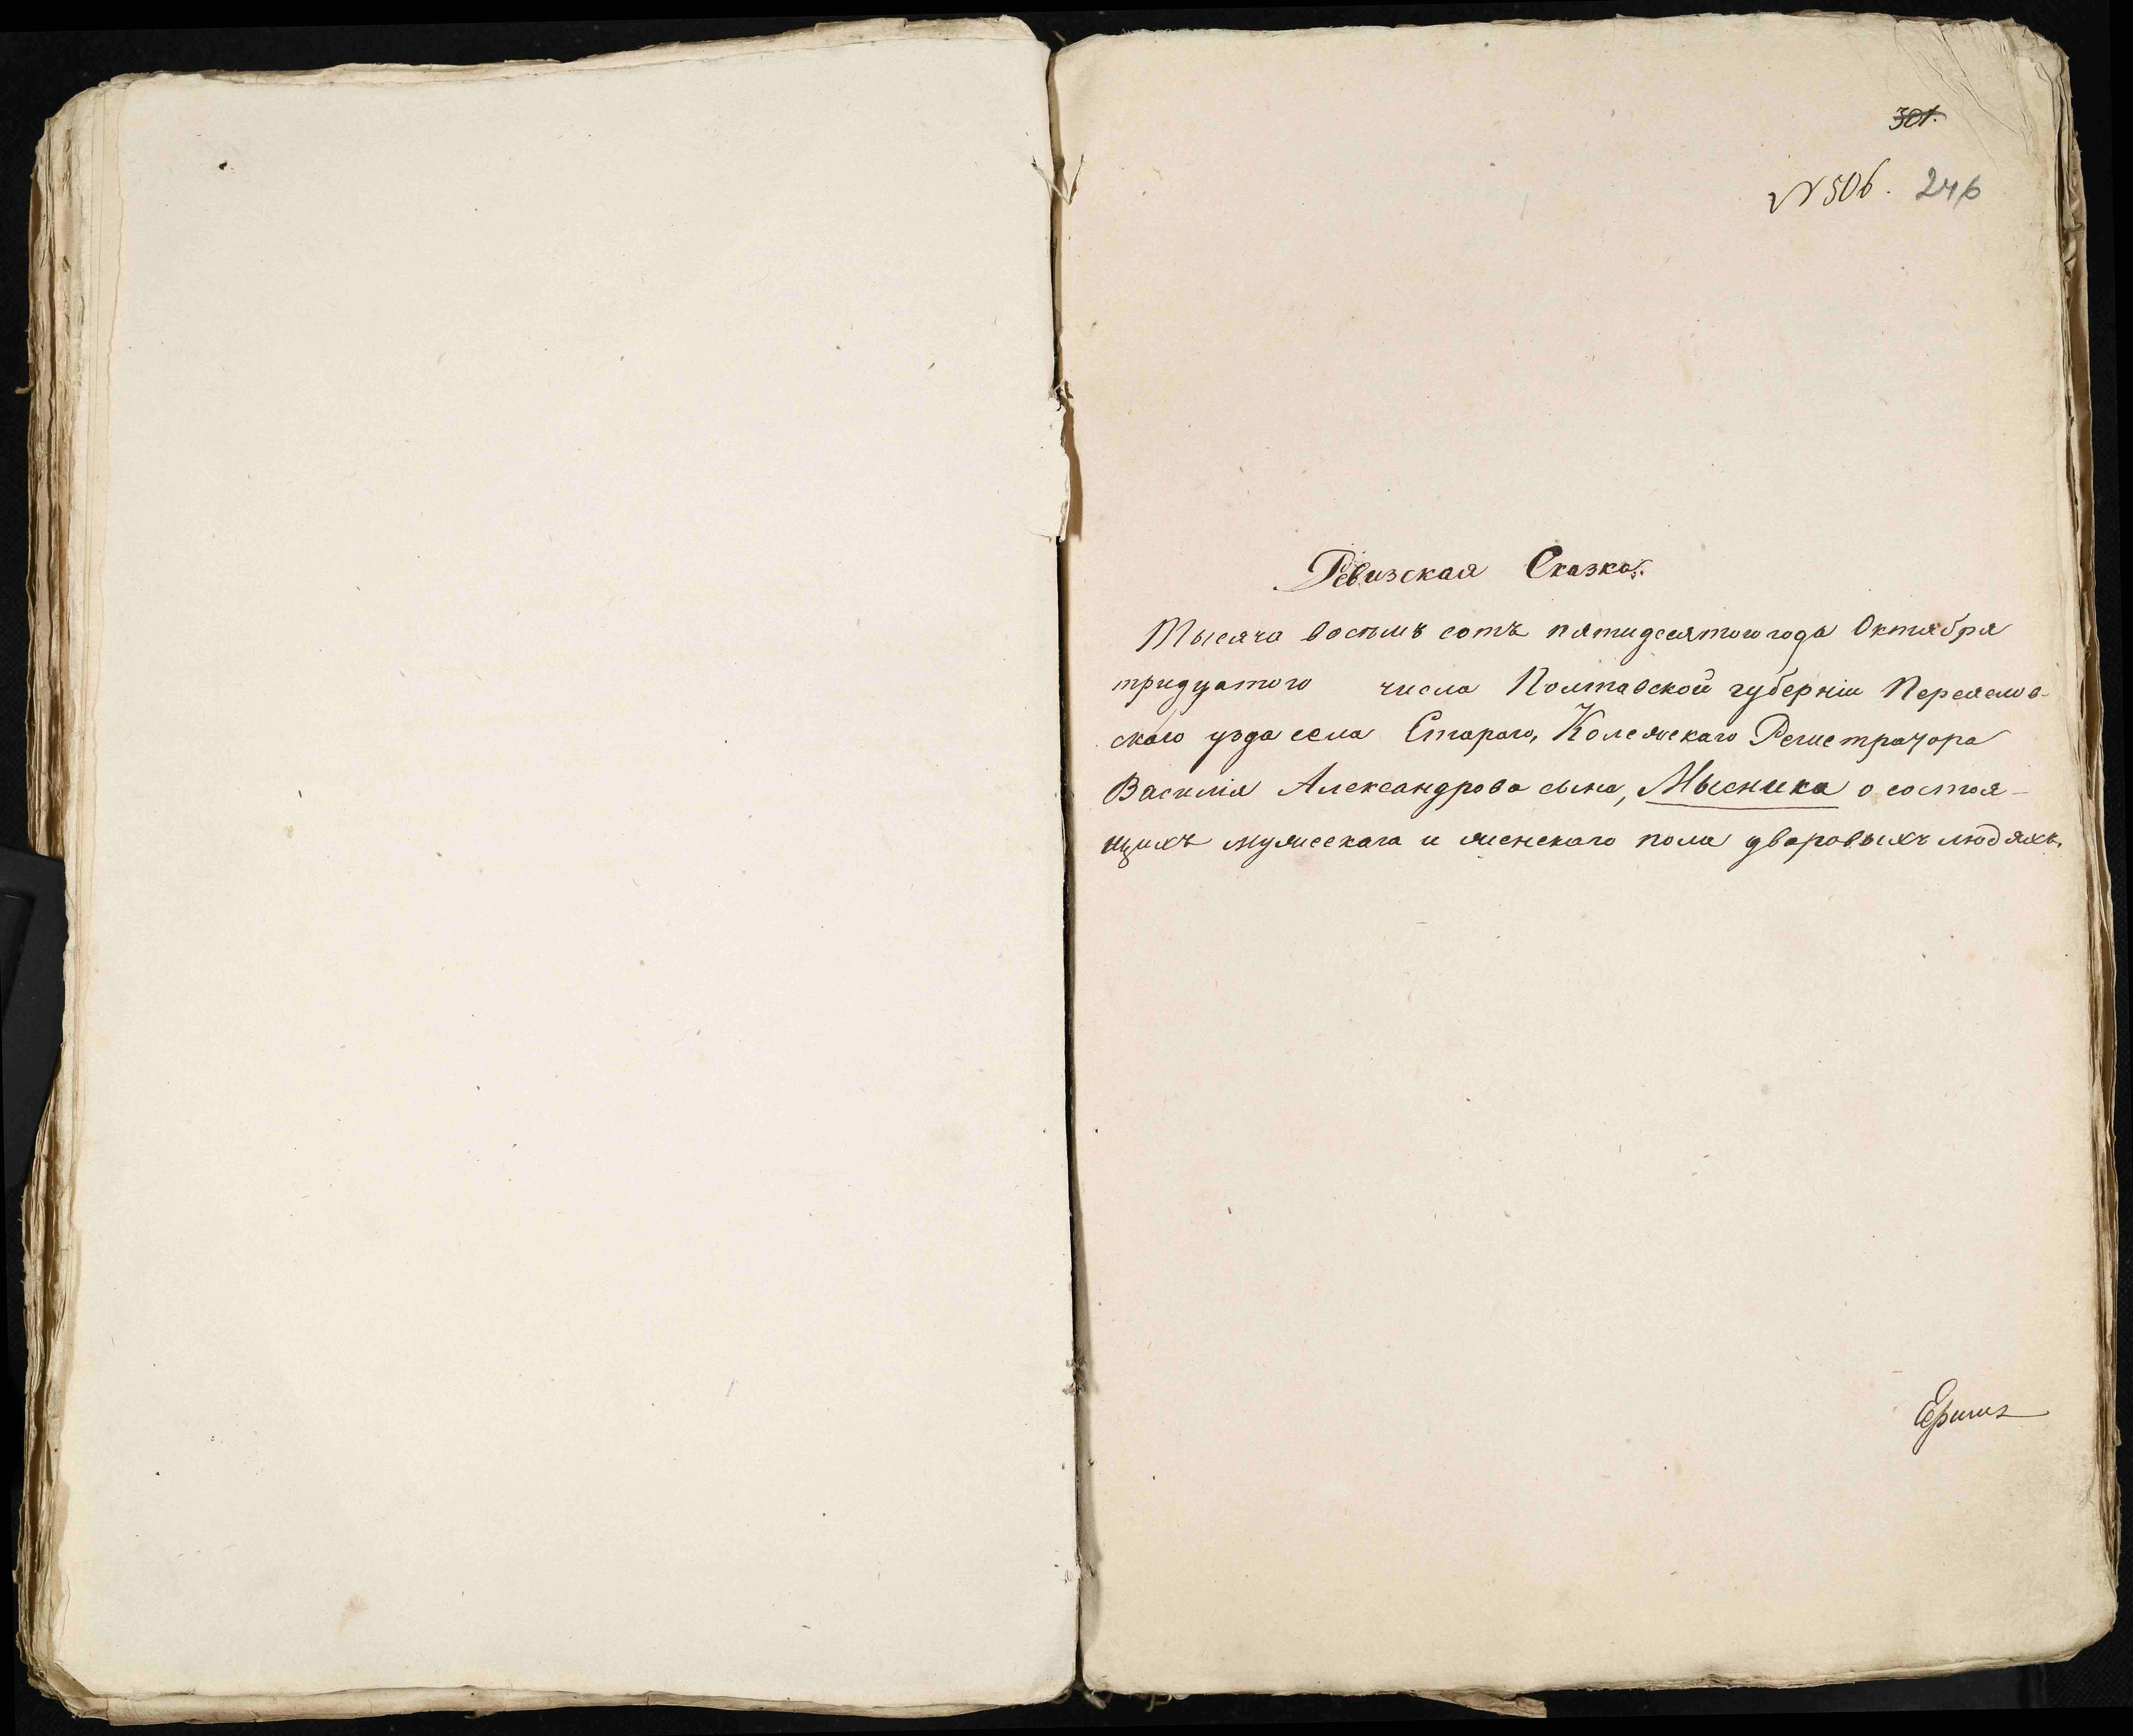 301.
№ 506. 246
Ревизская Сказка.
Тысяча восемь сотъ пятидесятого года Октября
тридцатого числа Полтавской губерніи Переяслов-
скаго уѣзда села Стараго, Колежскаго Регистратора
Василія Александрова сына, Мысника о состоя-
щихъ мужескага и женскаго пола дворовыхъ людяхъ.